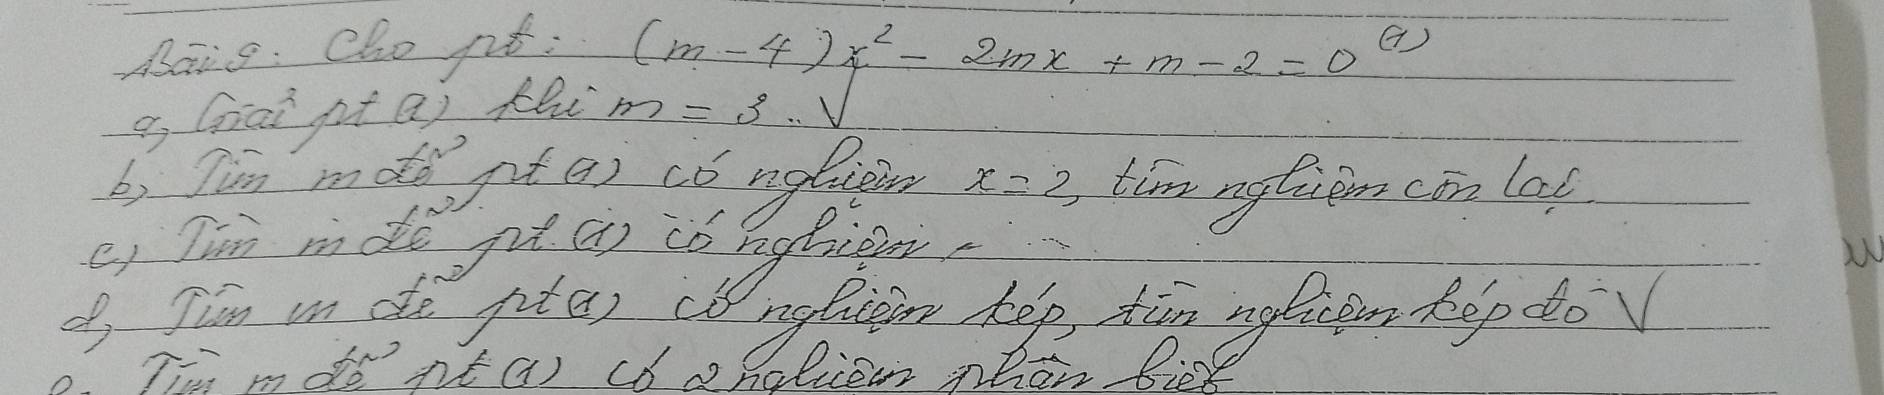 Bài 9: Cho pt: (m-4)x² - 2mx + m-2=0 (1)
a, Giải pt (1) khi m = 3. √
b, Tìm m để pt (1) có nghiệm x=2, tìm nghiệm còn lại.
c, Tìm m để pt (1) có nghiệm.
d, Tìm m để pt (1) có nghiệm kép, tìm nghiệm kép đó √
e. Tìm m để pt (1) có 2 nghiệm phân biệt